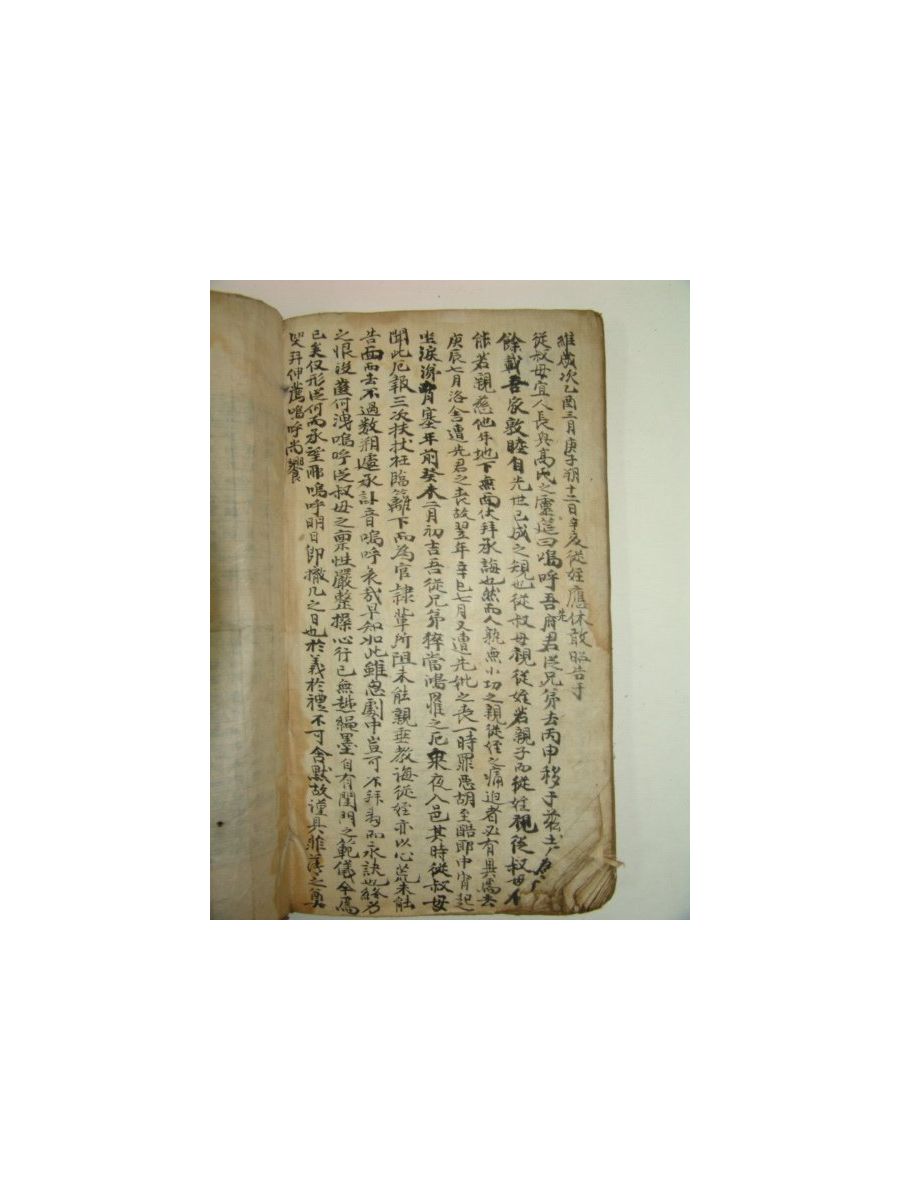 維歲次乙酉三月庚子朔十二日辛亥從姪應休敢昭告于
從叔母宜人長興高氏之靈筵曰嗚呼吾先府君從兄弟去丙申移于玆土
餘載吾家敦睦自先世已成之規也從叔母視從姪若親子而從姪視從叔母
能若親慈他年地下無面伏拜承誨也然而人孰無小功之親從侄之痛迫者必有異焉去
庚辰七月洛舍遭先君之喪故翌年辛巳七月又遭先妣之喪一時罪惡胡至酷耶中宵起
坐淚洶胃塞年前癸未二月初吉吾從兄弟猝當鴻罹之厄乘夜入邑其時從叔母
聞此厄報三次扶杖枉臨籬下而為官隷輩所阻未能親垂教誨從姪亦以心荒未能
告面而去不過數朔遽承訃音嗚呼哀哉早知如此雖怱劇中豈可不拜為而永訣也終乃
之恨沒齒何洩嗚呼從叔母之稟性嚴整操心行已無越繩墨自有閨門之範儀今焉
已矣仅形從何而承望耶嗚呼明日即撤几之日也於義於禮不可含默故謹具菲薄之奠
哭并伸薦嗚呼尚饗